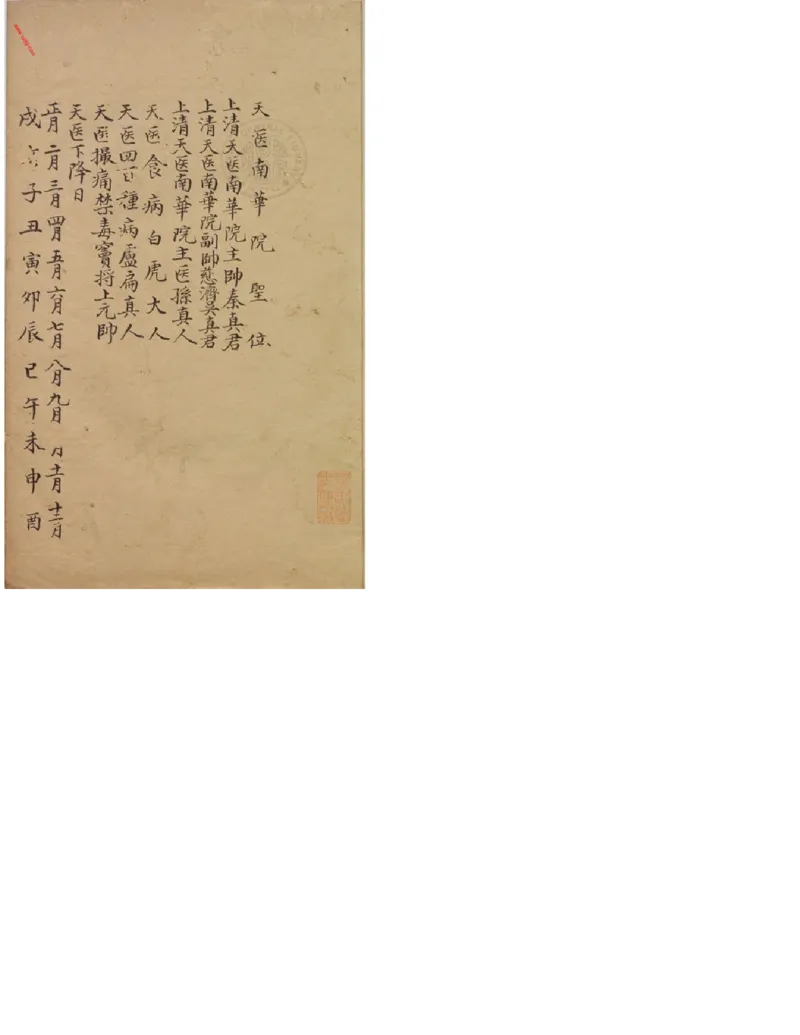 天医南華院聖位
上清天医南華院主帥秦真君
上清天医南華院副帥慈濟吴真君
上清天医南華院主医孫真人
天医食病白虎大人
天医四百種病盧扁真人
天医撮痛禁毒竇将上元帥
天医下降日
正月二月三月四月五月六月七月八月九月 月十一月十二月
戌 子丑寅卯辰巳午未申酉